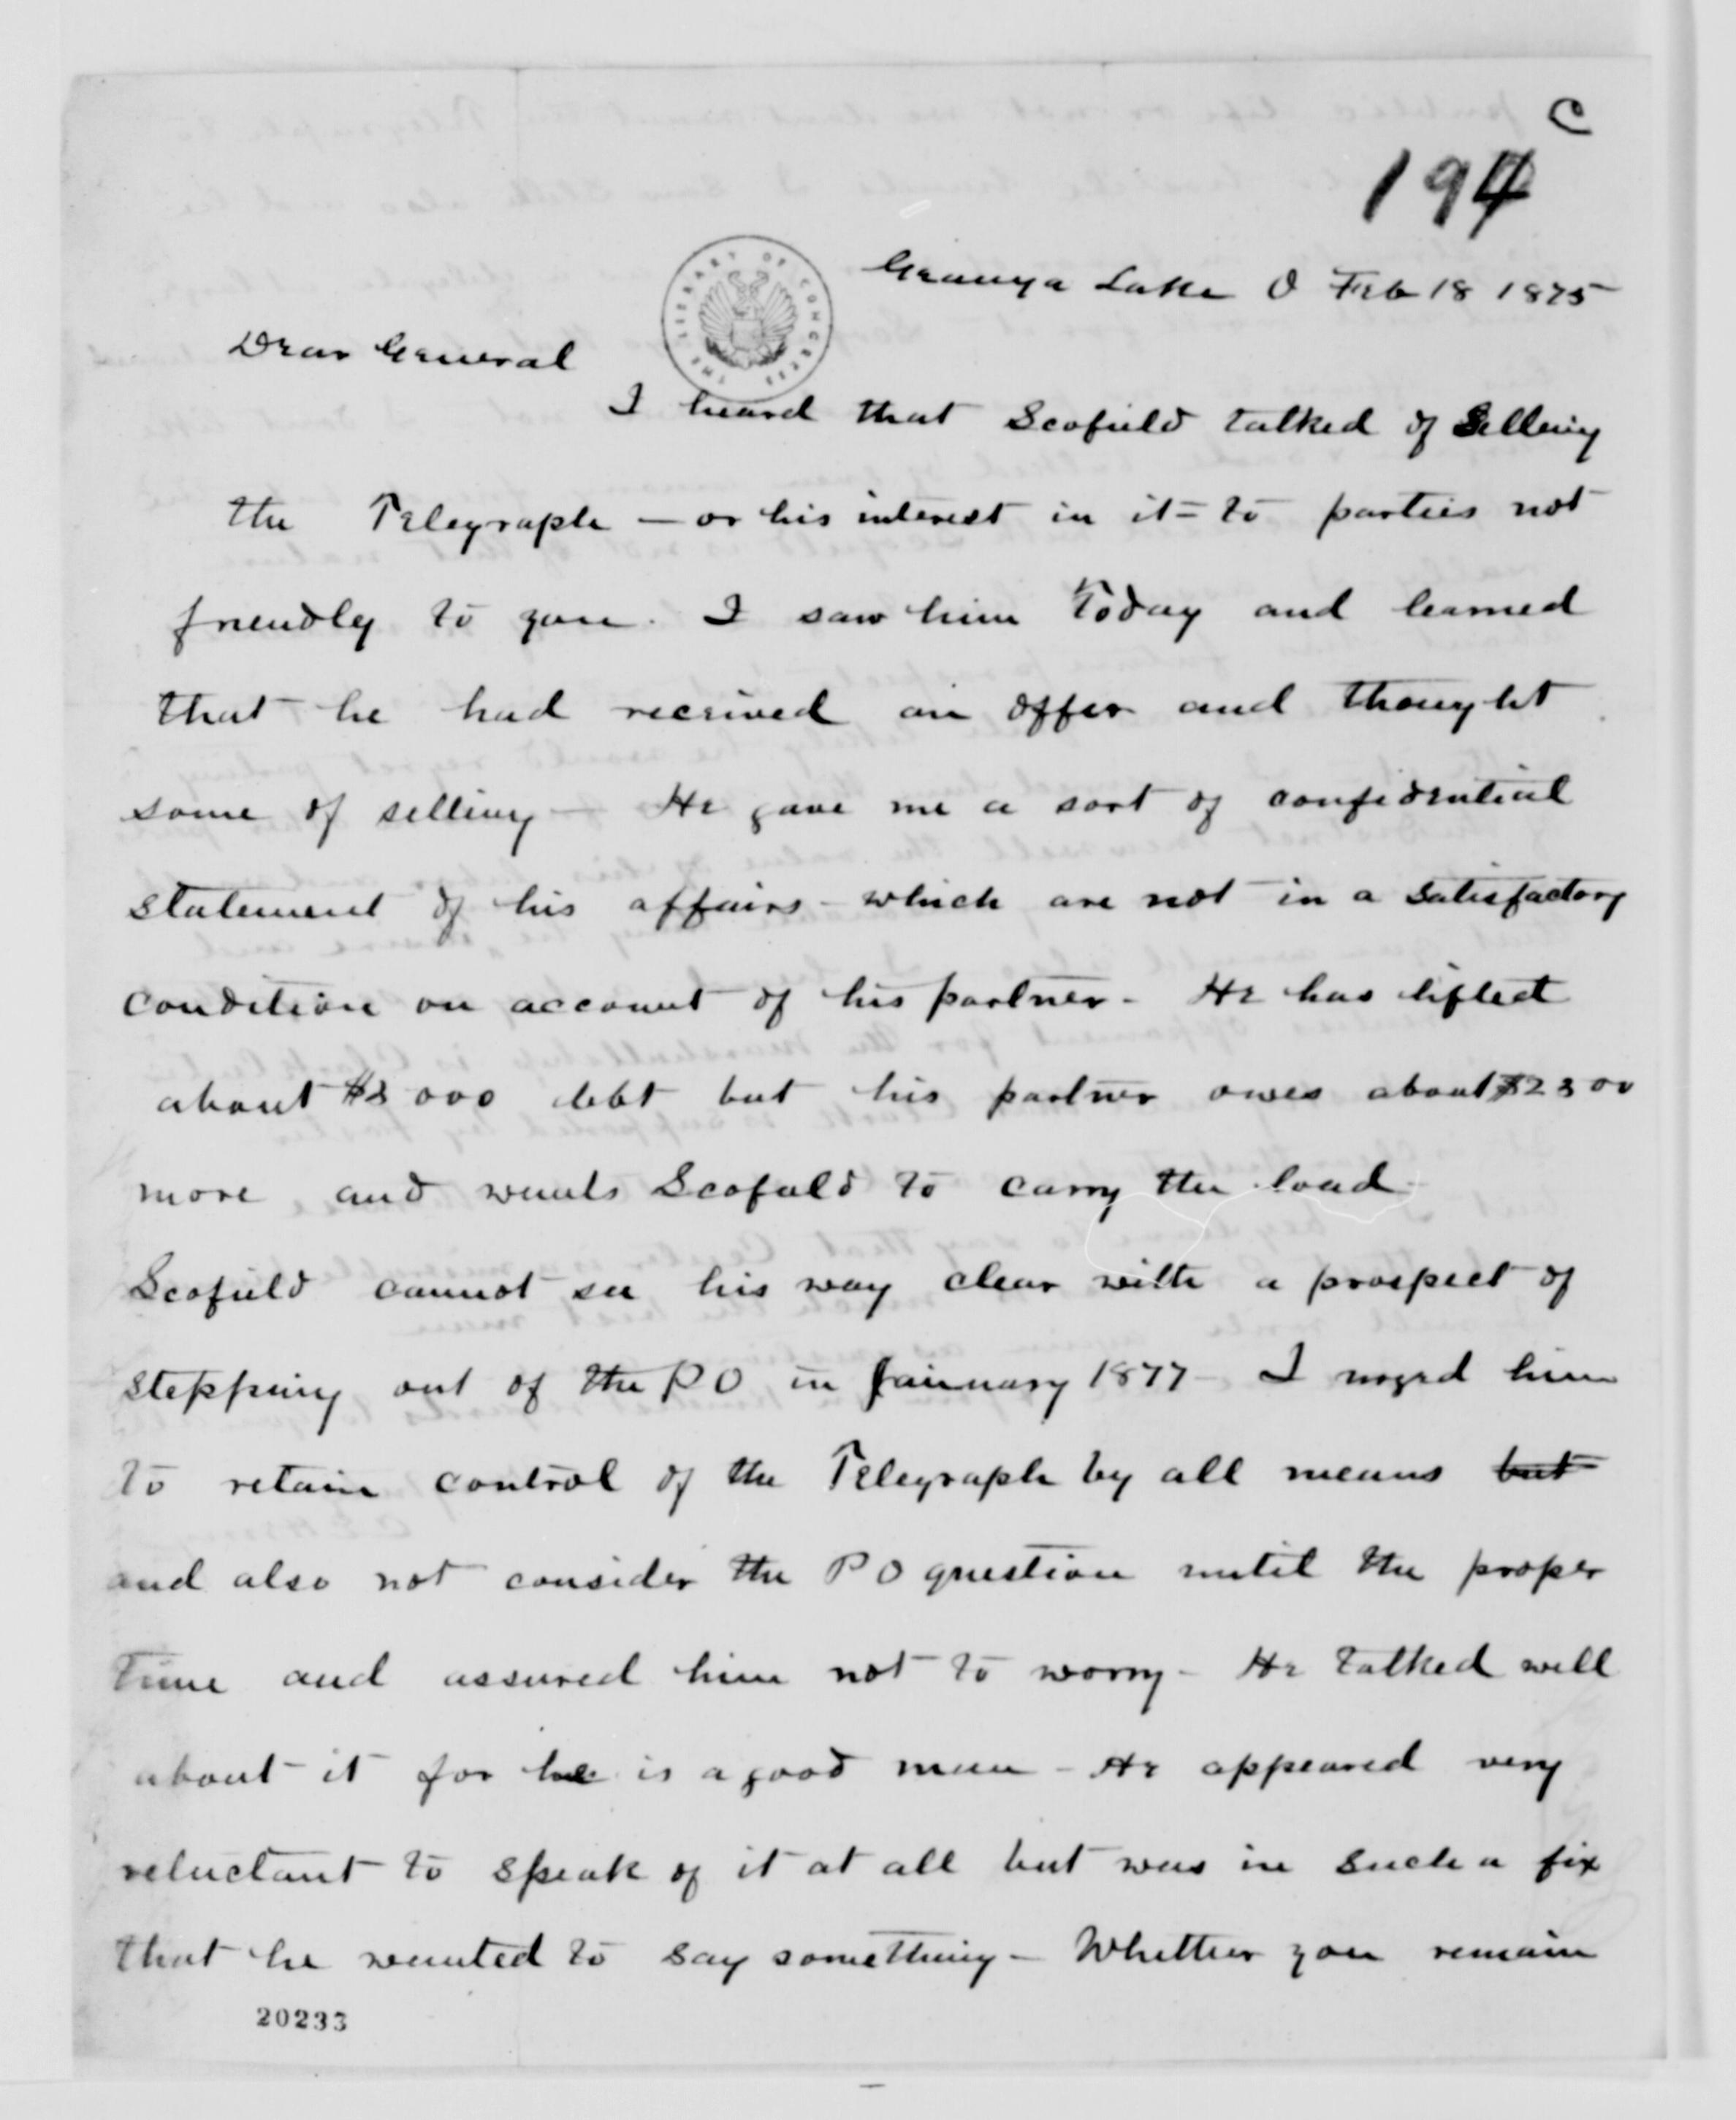 C
194
Geauga Lake O Feb 18 1875
THE LIBRARY OF CONGRESS
Dear General
I heard that Scofield talked of Selling
the Telegraph — or his interest in it — to parties not
friendly to you. I saw him Today and learned
that he had received an offer and thought
some of selling — He gave me a sort of confidential
statement of his affairs — which are not in a satisfactory
condition on account of his partner — He has lifted
about $3000 debt but his partner owes about $2300
more and wants Scofield to carry the load —
Scofield cannot see his way clear with a prospect of
stepping out of the P O in January 1877 — I urged him
to retain control of the Telegraph by all means but
and also not consider the P O question until the proper
time and assured him not to worry — He talked well
about it for he is a good man — He appeared very
reluctant to speak of it at all but was in such a fix
that he wanted to say something — Whether you remain
20233